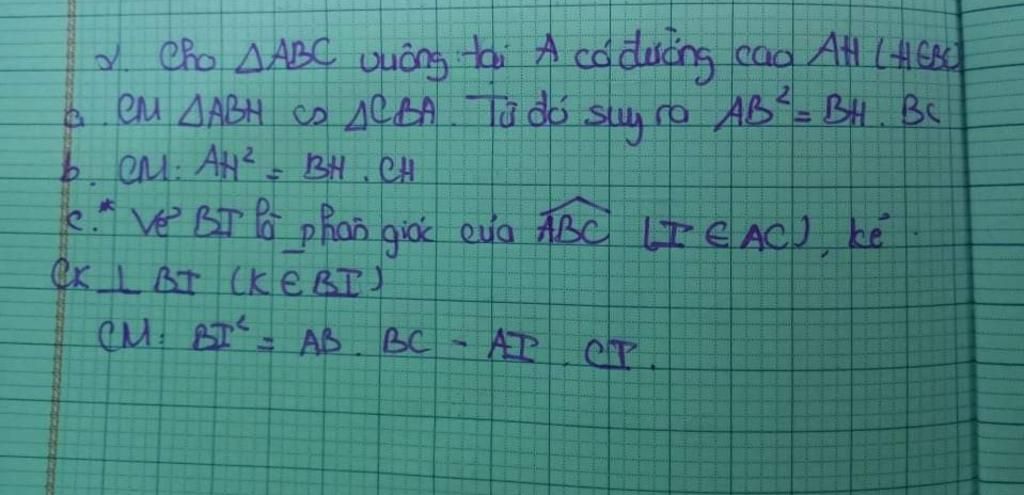 2. Cho ΔABC vuông tại A có đường cao AH (H∈BC)
a. CM ΔABH ∽ ΔCBA. Từ đó suy ra AB² = BH . BC
b. CM: AH² = BH . CH
c.* Vẽ BI là phân giác của \widehat{ABC} (I ∈ AC), kẻ
CK ⊥ BI (K ∈ BI)
CM: BI² = AB . BC - AI . CI .